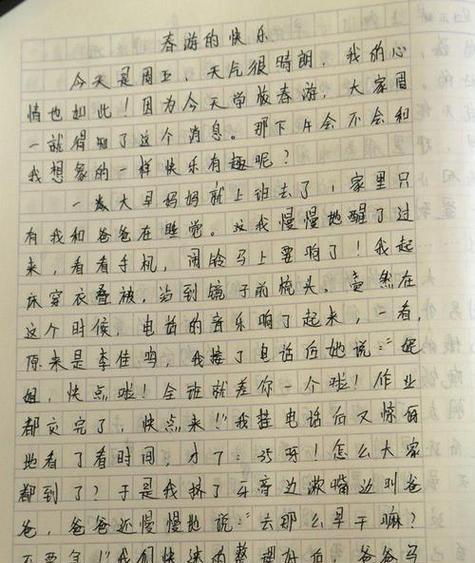 春游的快乐
今天是周五，天气很晴朗，我的心
情也如此！因为今天学校春游，大家周
一就得知了这个消息。那下午会不会和
我想象的一样快乐有趣呢？
一大早妈妈就上班去了，家里只
有我和爸爸在睡觉。这我慢慢地醒了过
来，看看手机，闹铃马上要响了！我起
床穿衣叠被，站到镜子前梳头。竟然在
这个时候，电话的音乐响了起来，一看，
原来是李佳鸣，我接了电话后她说：“妮
姐，快点啦！全班就差你一个啦！作业
都交完了，快点来！”我挂电话后又惊讶
地看了看时间，才7：35呀！怎么大家
都到了？于是我挤了牙膏边漱嘴边叫爸
爸，爸爸还慢慢地说：“去那么早干嘛？
不要急！”我们快速的整理好后，爸爸马